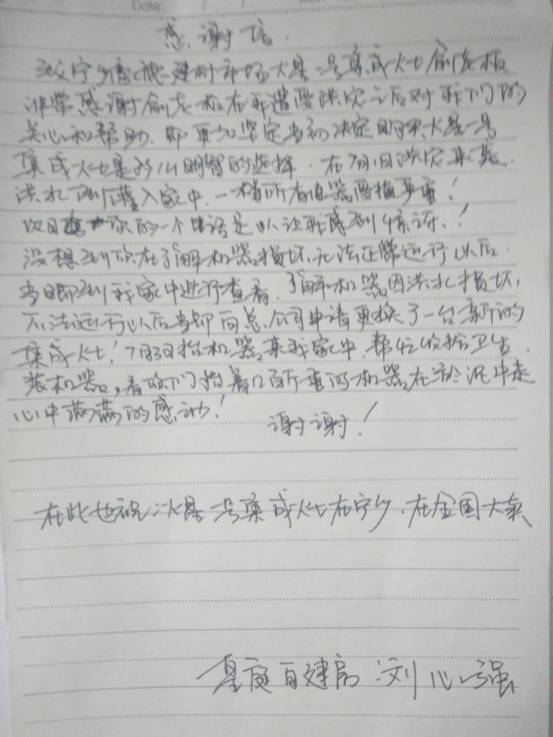 感谢信
致宁乡德、建材市场火星一号集成灶俞老板
非常感谢俞老板在我遭受洪灾之后对我们的
关心和帮助. 即更加坚定当初决定购买火星一号
集成灶是多么明智的选择. 在7月1日洪灾来袭.
洪水 灌入家中. 一楼所有电器 损 !
次日 你的一个电话足以让我感到惊讶.!
没想到你在了解机器损坏.无法正常运行以后.
当即到我家中进行查看. 了解机器因洪水损坏,
无法运行以后当即向总公司申请更换了一台新的
集成灶! 7月3日抬机器来我家中. 帮忙收拾卫生.
装机器. 看你们抬着几百斤重的机器在淤泥中走
心中满满的感动!
谢谢!
在此也祝火星一号集成灶在宁乡.在全国大卖
夏 自建房 刘 强